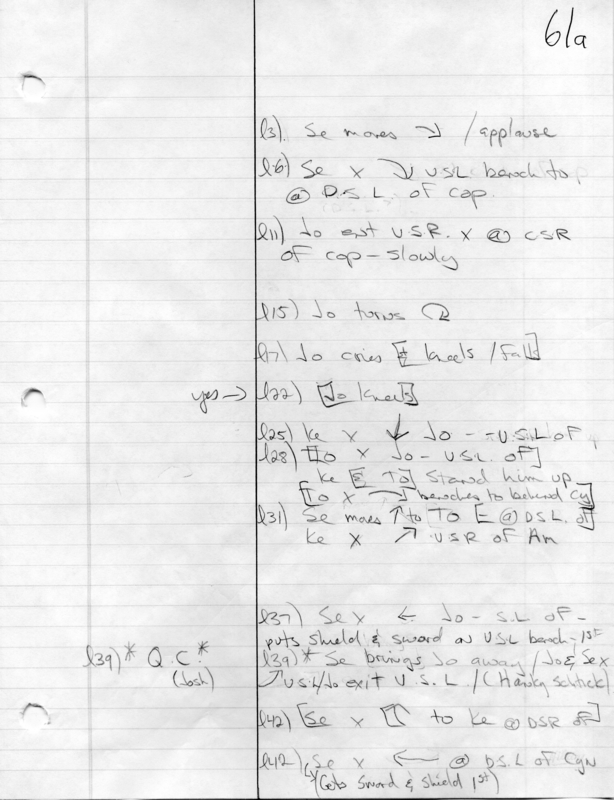 61a
l3). Se moves ↘ /applause
l6) Se x ↘ U.S.L bench to
@ D.S.L. of cap.
l11) Jo ent U.S.R. x @ CSR
of cap - slowly
l15) Jo turns
l17) Jo cries [& kneels /Falls]
yes → l22) [Jo kneels]
l25) Ke x ↓ Jo -- U.S.L of
l28) [To x Jo - USL of]
Ke [& To] stand him up
[To x → benches to behind Cy]
l31) Se moves ↑ to To [- @ DSL. of]
Ke x ↗ USR of An
l37) Se x ← Jo - S.L of -
puts shield & sword on USL bench - 1st
l39)* Q.C.* l39)* Se brings Jo away / Jo & Se x
(Josh) ↗ U.S.L/Jo exit U.S.L / (Hanky Schtick)
l42) [Se x ↖ to Ke @ DSR of]
l42) Se x ← @ DS.L of Cyn
↳ (Gets Sword & shield 1st)